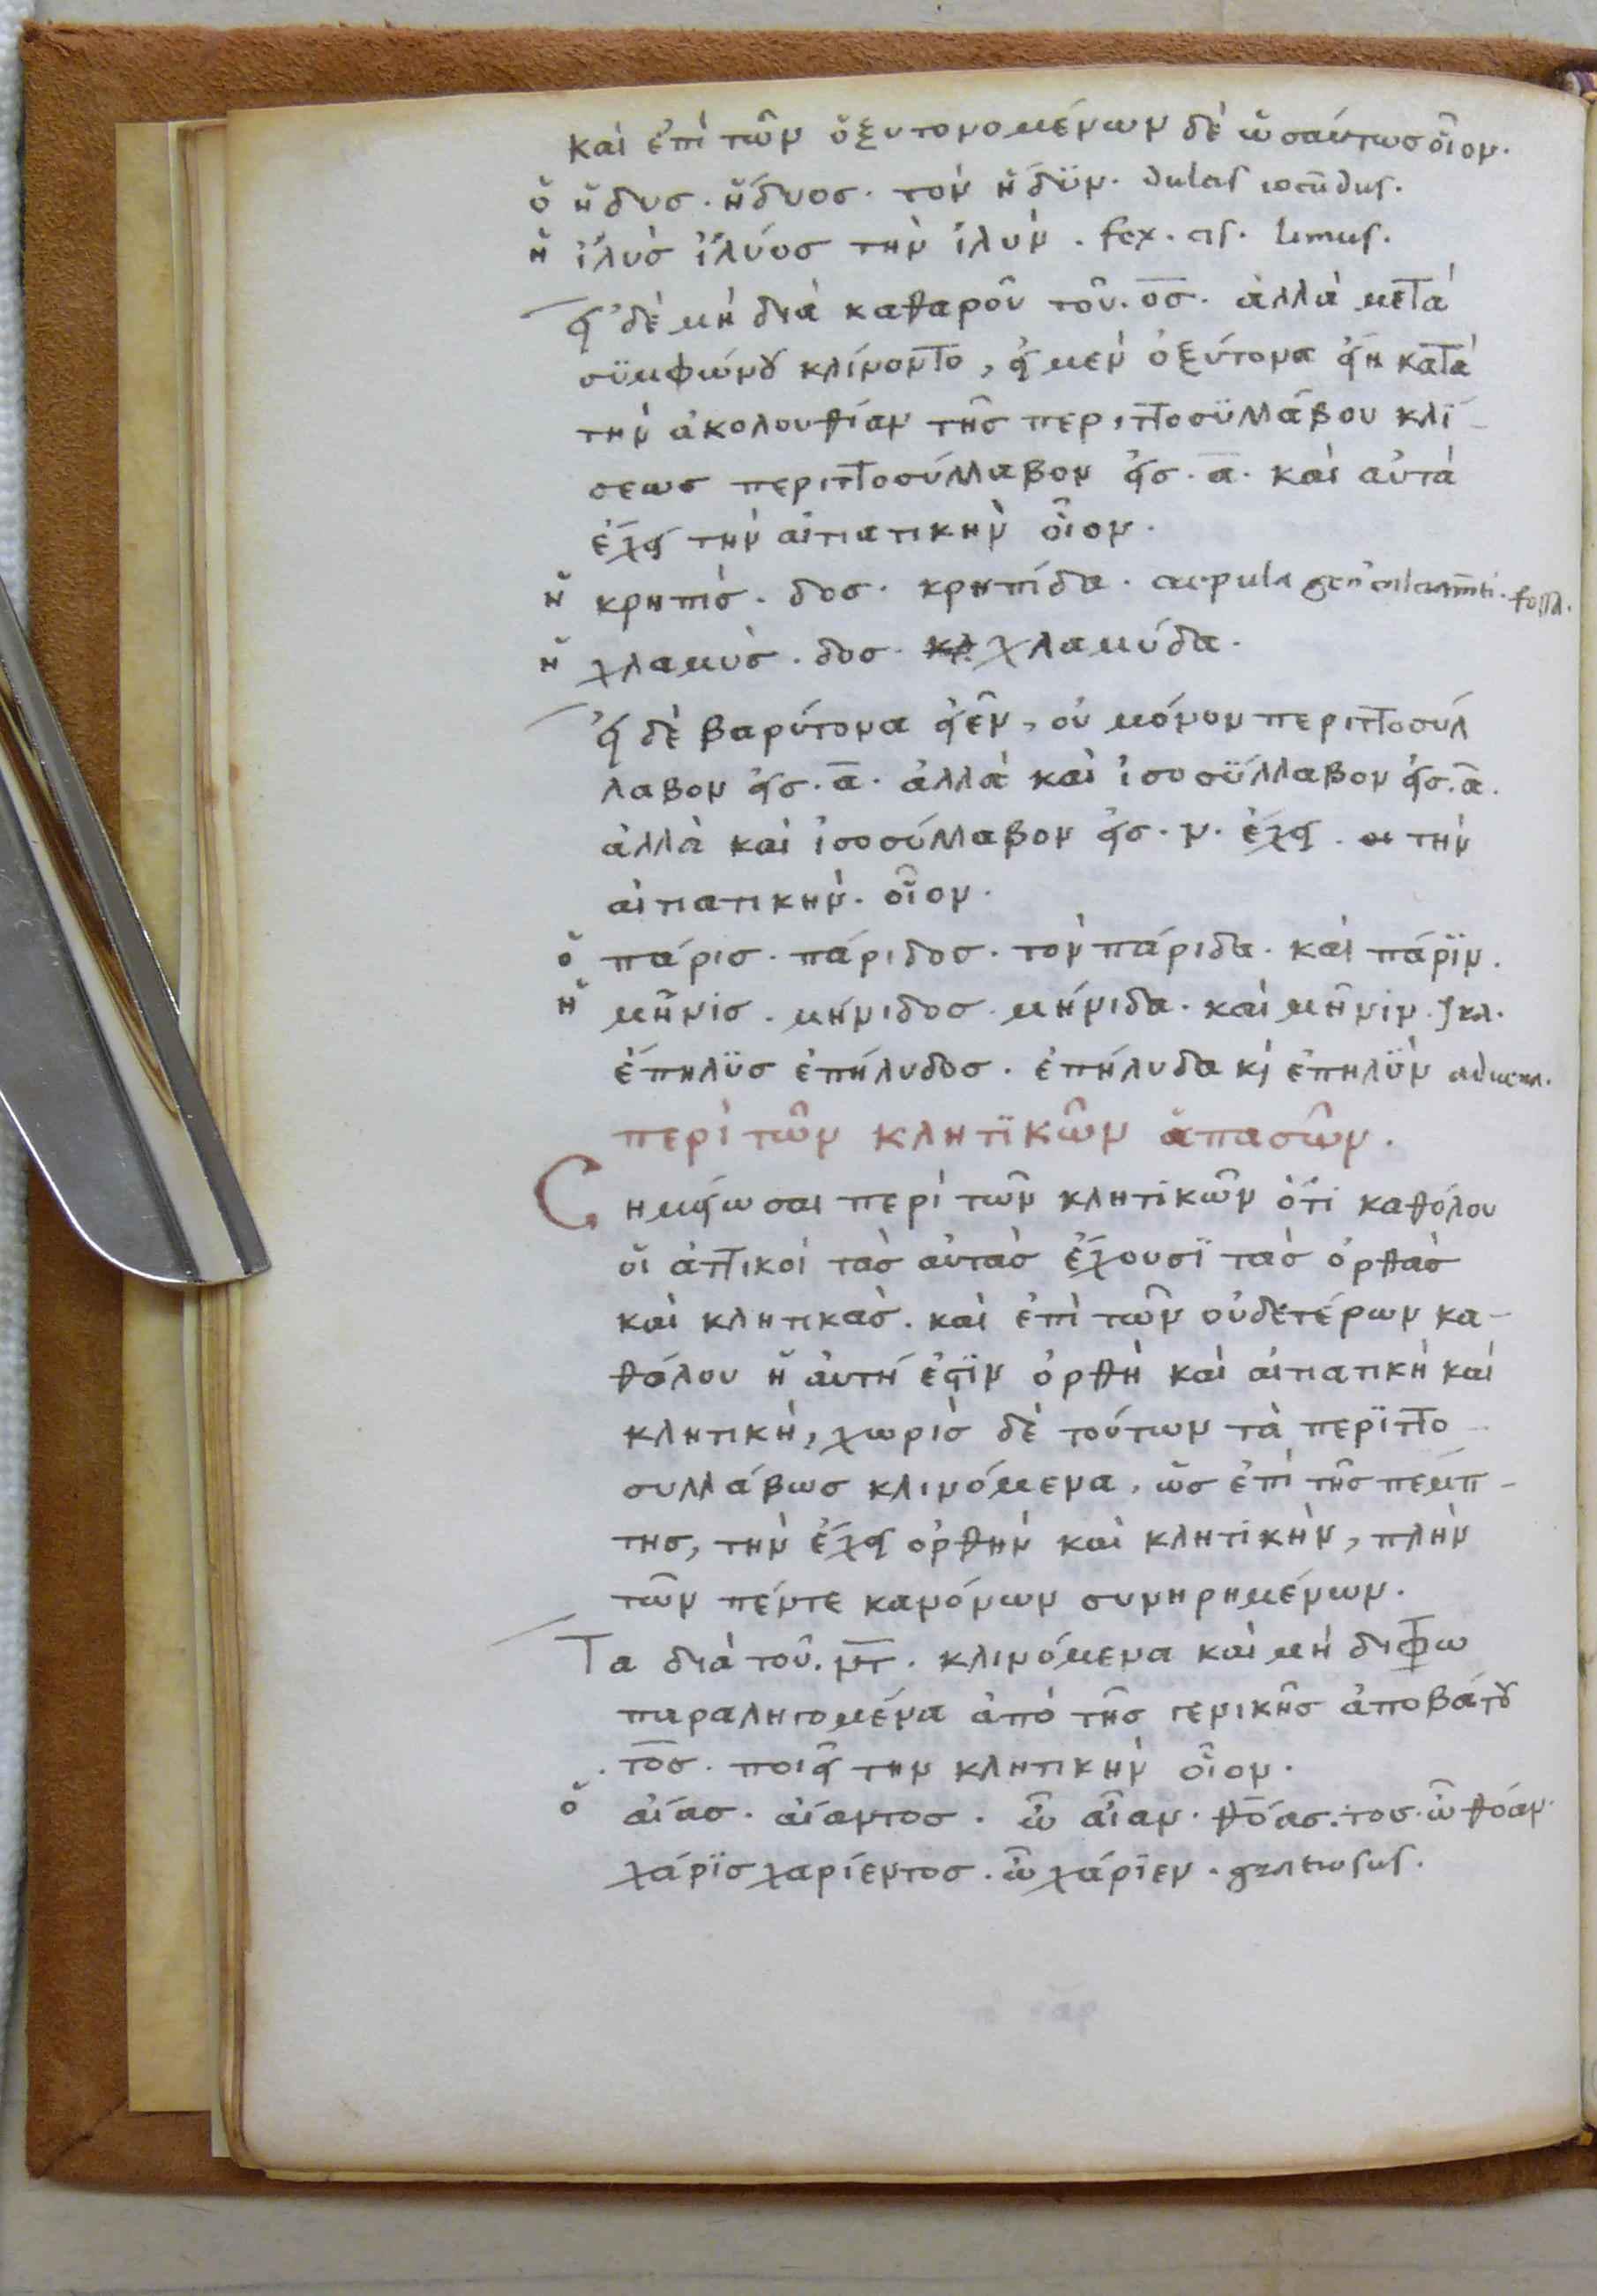 καὶ ἐπὶ τῶν ὀξυτονομένων δὲ ὡσαύτωσ οἷον.
ὁ ἡδυσ. ἥδυοσ. τὸν ἡδϋν. dulcis iocūdus.
ἡ ἰλυσ ἰλύοσ τὴν ἰλυν. fex. cis. limus.
εἰ δὲ μὴ διὰ καθαροῦ τοῦ. ος. ἀλλὰ μετὰ
συμφώνου κλίνοντο, εἰ μεν ὀξύτονα εἴη κατὰ
τὴν ἀκολουθίαν τῆς περιττοσϋλλάβου κλί-
σεως περιττοσύλλαβον εἰσ. α. καὶ αὐτὰ
ἔχει τὴν αἰτιατικὴν οἷον.
ἡ κρηπισ. δοσ. κρηπίδα. crepula
ἡ χλαμυσ. δοσ. χλαμύδα.
εἰ δὲ βαρύτονα εἶεν, οὐ μόνον περιττοσυλ
λαβον εἰσ. α. ἀλλὰ καὶ ἰσοσϋλλαβον εἰσ. α.
ἀλλὰ καὶ ἰσοσύλλαβον εἰσ. ν. ἔχει. τὴν
αἰτιατικην. οἷον.
ὁ πάρισ. πάριδοσ. τὸν πάριδα. καὶ πάρϊν.
ἡ μῆνισ. μήνιδοσ. μήνιδα. καὶ μῆνιν.
ἔπηλϋσ ἐπήλυδοσ. ἐπήλυδα κὶ ἐπηλϋν aduena.
περὶ τῶν κλητϊκῶν ἁπασῶν.
Σημείωσαι περὶ τῶν κλητικῶν ὅτι καθόλου
οἱ ἀττικοὶ τὰσ αὐτὰσ ἔχουσϊ τὰσ ὀρθὰσ
καὶ κλητικάσ. καὶ ἐπὶ τῶν οὐδετέρων κα-
θόλου ἡ αὐτή ἐστϊν ὀρθὴ καὶ αἰτιατικὴ καὶ
κλητικὴ, χωρὶσ δὲ τούτων τὰ περϊττο-
συλλάβωσ κλινόμενα, ὡς ἐπὶ τῆς πέμπ-
τησ, τὴν ἔχει ὀρθὴν καὶ κλητικὴν, πλὴν
τῶν πέντε κανόνων συνηρημένων.
Τα διὰ τοῦ. ντ. κλινόμενα καὶ μὴ διφθω
παραληγομένα ἀπὸ τῆς γενικῆς ἀποβάτου
. τος. ποιεῖ την κλητικὴν οἷον.
ὁ αἴασ. αἴαντοσ. ὦ αἶαν. θόασ. τοσ. ὦ θόαν.
χάρϊσ χαρίεντοσ. ὦ χάρϊεν. gratiosus.